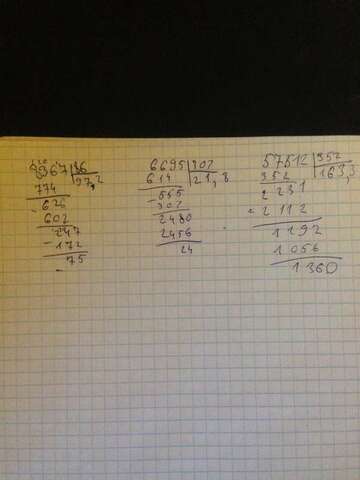 8367 86
97,2
774
- 626
602
247
- 172
75
-
6695 307
614 21,8
- 555
307
2480
2456
24
57512 352
352 163,3
2231
- 2112
1192
1056
1360